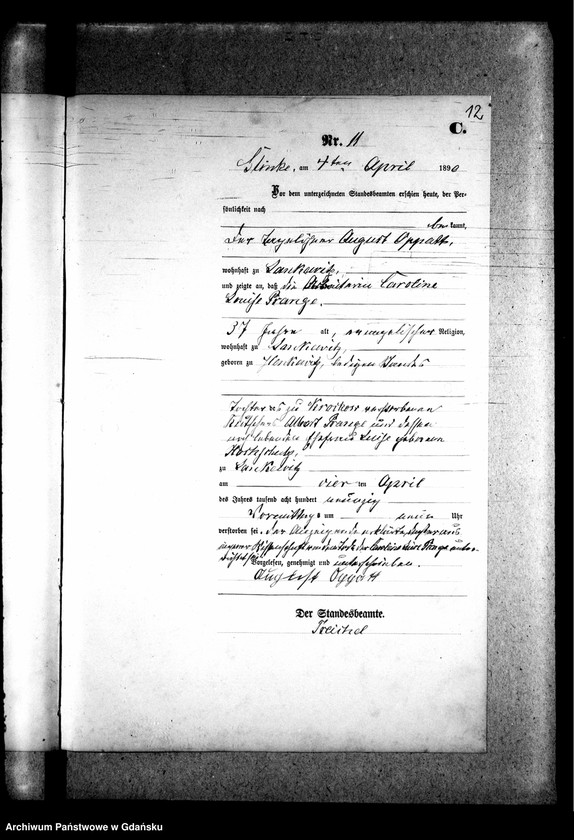 12
C.
Nr. 11
am 4ten April 1890
Vor dem unterzeichneten Standesbeamten erschien heute, der Per-
sönlichkeit nach
bekannt,
der August Oppatt,
wohnhaft zu Sankewitz,
und zeigte an, daß die Arbeiterin Caroline
Louise Prange.
37 Jahre alt, evangelischer Religion,
wohnhaft zu Sankewitz,
geboren zu ledigen Standes
Tochter des zu Krockow verstorbenen
Albert Prange und dessen
noch lebenden Ehefrau Luise geborenen
zu Sankewitz
am vier ten April
des Jahres tausend acht hundert neunzig
Vormittags um neun Uhr
verstorben sei. Der Anzeigende erklärte, daß er aus
eigener Wissenschaft von dem Tode der Caroline Luise Prange unter-
richtet sei.
Vorgelesen, genehmigt und unterschrieben.
August Oppatt
Der Standesbeamte.
Archiwum Państwowe w Gdańsku